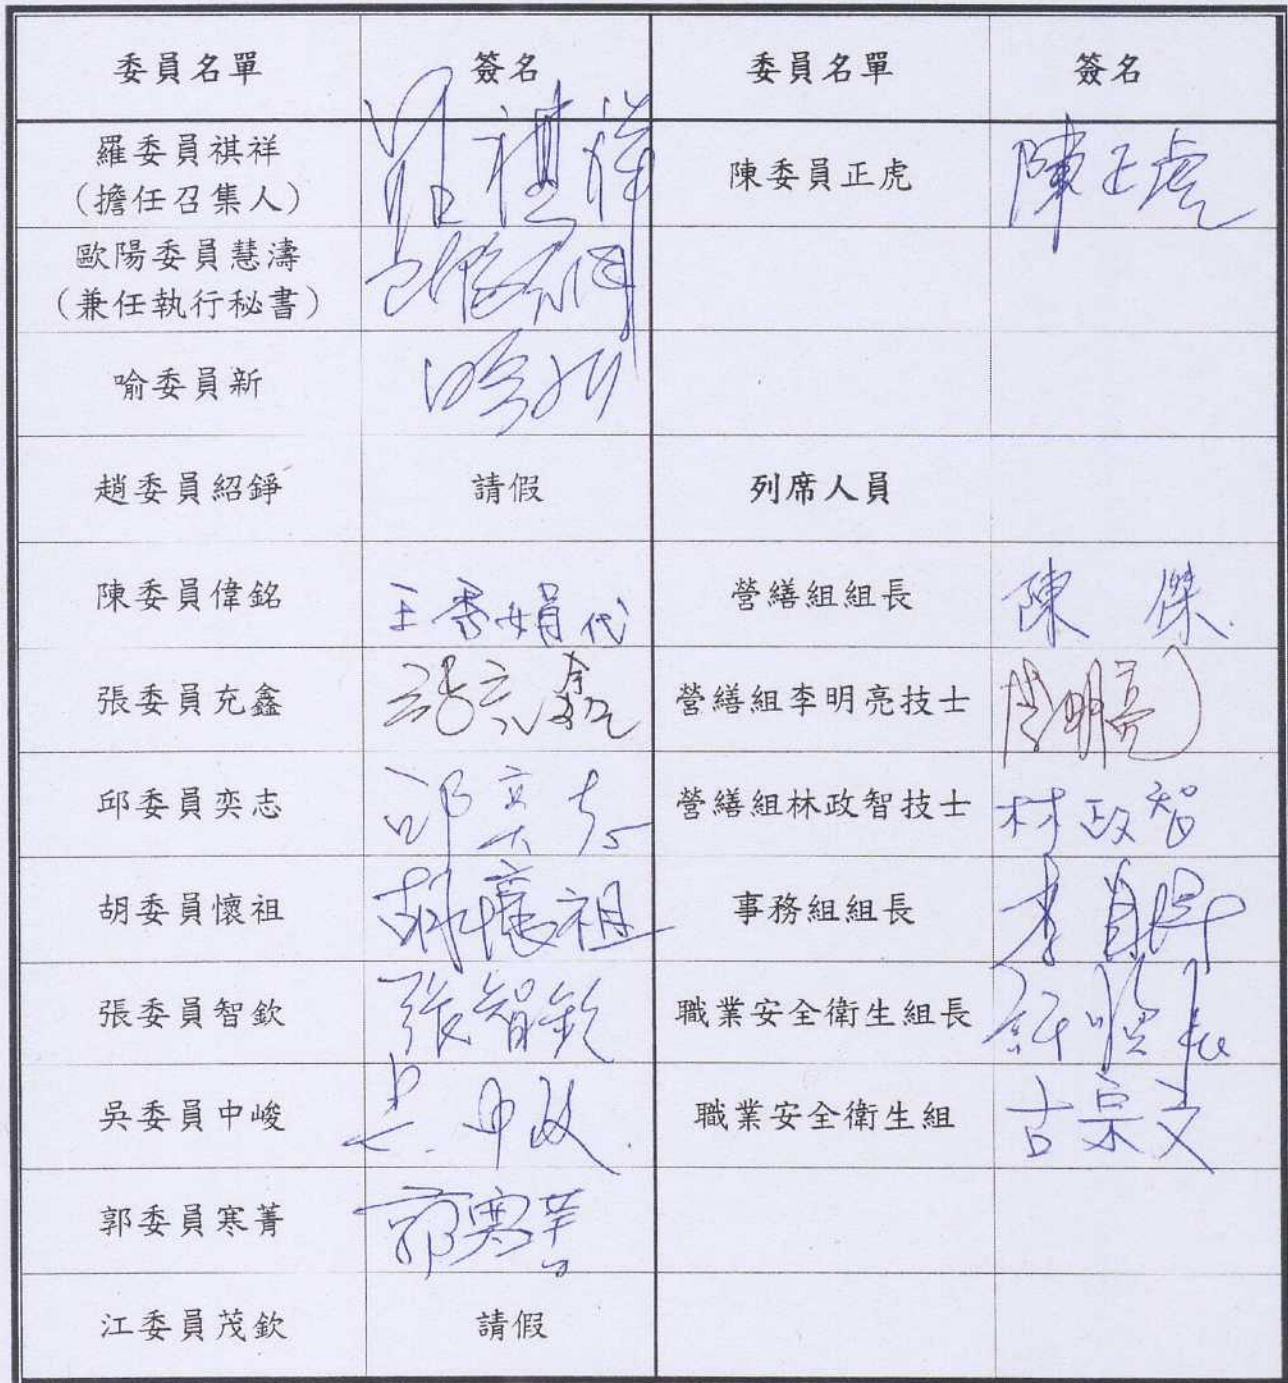 委員名單 簽名 委員名單 簽名
羅委員祺祥 羅祺祥 陳委員正虎 陳正虎
(擔任召集人)
歐陽委員慧濤
(兼任執行秘書)
喻委員新 喻新
趙委員紹錚 請假 列席人員
陳委員偉銘 王秀娟代 營繕組組長 陳傑
張委員充鑫 張充鑫 營繕組李明亮技士 李明亮
邱委員奕志 邱奕志 營繕組林政智技士 林政智
胡委員懷祖 胡懷祖 事務組組長
張委員智欽 張智欽 職業安全衛生組長
吳委員中峻 吳中峻 職業安全衛生組 古宗文
郭委員寒菁 郭寒菁
江委員茂欽 請假